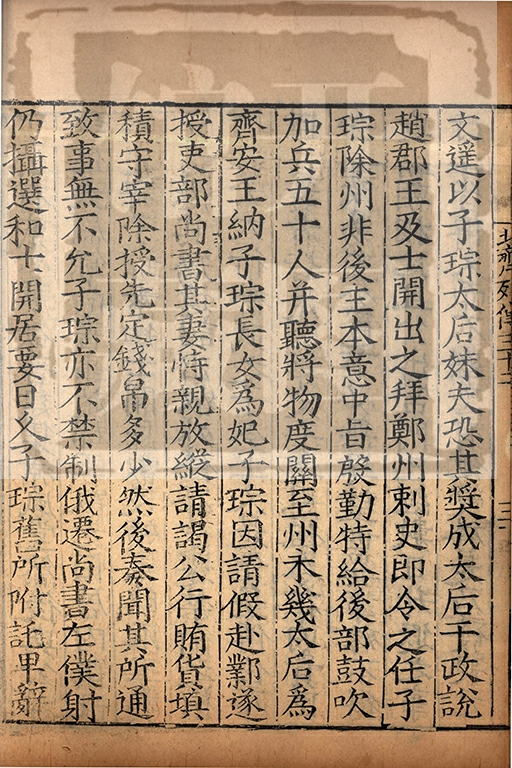 文遥以子琮太后妹夫恐其奬成太后干政說
趙郡王及士開出之拜鄭州刺史即令之任子
琮除州非後主本意中旨殷勤特給後部鼓吹
加兵五十人并聽將物度關至州未幾太后為
齊安王納子琮長女為妃子琮因請假赴鄴遂
授吏部尚書其妻恃親放縱請謁公行賄貨填
積守宰除授先定錢帛多少然後奏聞其所通
致事無不允子琮亦不禁制俄遷尚書左僕射
仍攝選和士開居要日久子琮舊所附託卑辭